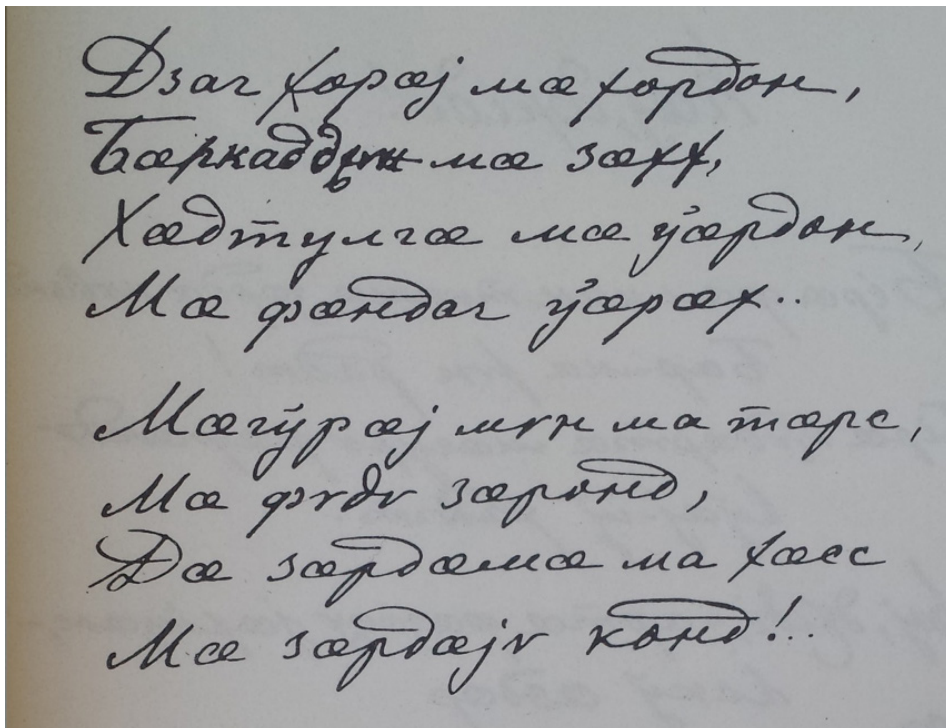 Дзаг хорӕј мӕ хордон,
мӕ зӕхх,
Хӕдтулгӕ мӕ ўӕрдон,
Мӕ фӕндаг ўӕрӕх..
Мӕгўрӕј мѵн ма тӕрс,
Мӕ фѵдѵ зӕронд,
Дӕ зӕрдӕмӕ ма хӕсс
Мӕ зӕрдӕјѵ конд!..